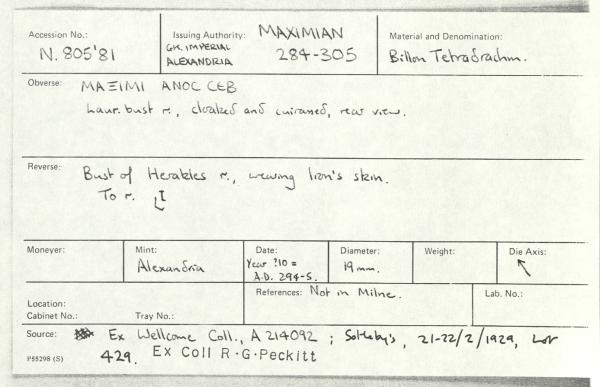 Accession No.: Issuing Authority: MAXIMIAN Material and Denomination:
N. 805'81 GK. IMPERIAL ALEXANDRIA 284-305 Billon Tetradrachm.
Obverse: MAΞIMI ANOC CЄB
Laur. bust r., cloaked and cuirassed, rear view.
Reverse: Bust of Herakles r., wearing lion's skin.
To r.
Moneyer: Mint: Date: Diameter: Weight: Die Axis:
Alexandria Year ?10 = A.D. 294-5. 19mm. ↖
References: Not in Milne. Lab. No.:
Location:
Cabinet No.: Tray No.:
Source: Ex Wellcome Coll., A 214092 ; Sotheby's, 21-22/2/1929, Lot
P55298 (S) 429. Ex Coll R.G.Peckitt